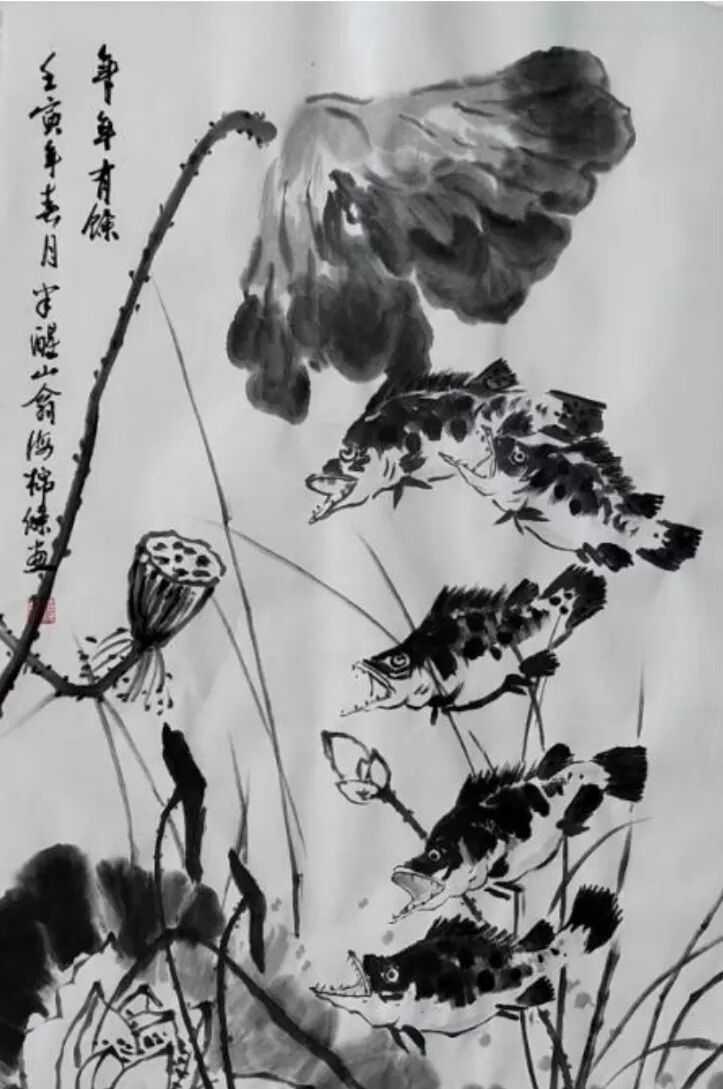 年年有餘
壬寅年春月半醒山翁海棉绦画